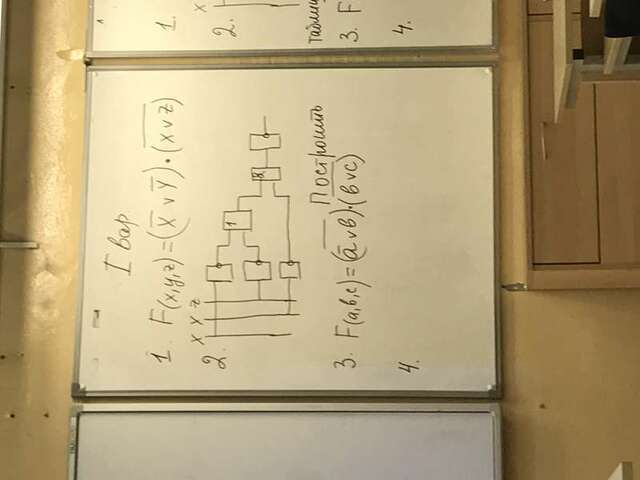 I вар.
1. F(x,y,z)=(x̅ ∨ y̅)·(x̅ ∨ z̅)
2.
X Y Z
1
&
3. F(a,b,c)=(a̅∨b)·(b∨c) Построить
4.
1.
2.
X
Таблиц
3. F
4.